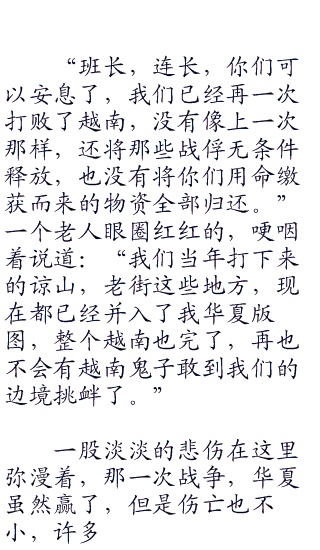 “班长，连长，你们可
以安息了，我们已经再一次
打败了越南，没有像上一次
那样，还将那些战俘无条件
释放，也没有将你们用命缴
获而来的物资全部归还。”
一个老人眼圈红红的，哽咽
着说道：“我们当年打下来
的谅山，老街这些地方，现
在都已经并入了我华夏版
图，整个越南也完了，再也
不会有越南鬼子敢到我们的
边境挑衅了。”
一股淡淡的悲伤在这里
弥漫着，那一次战争，华夏
虽然赢了，但是伤亡也不
小，许多